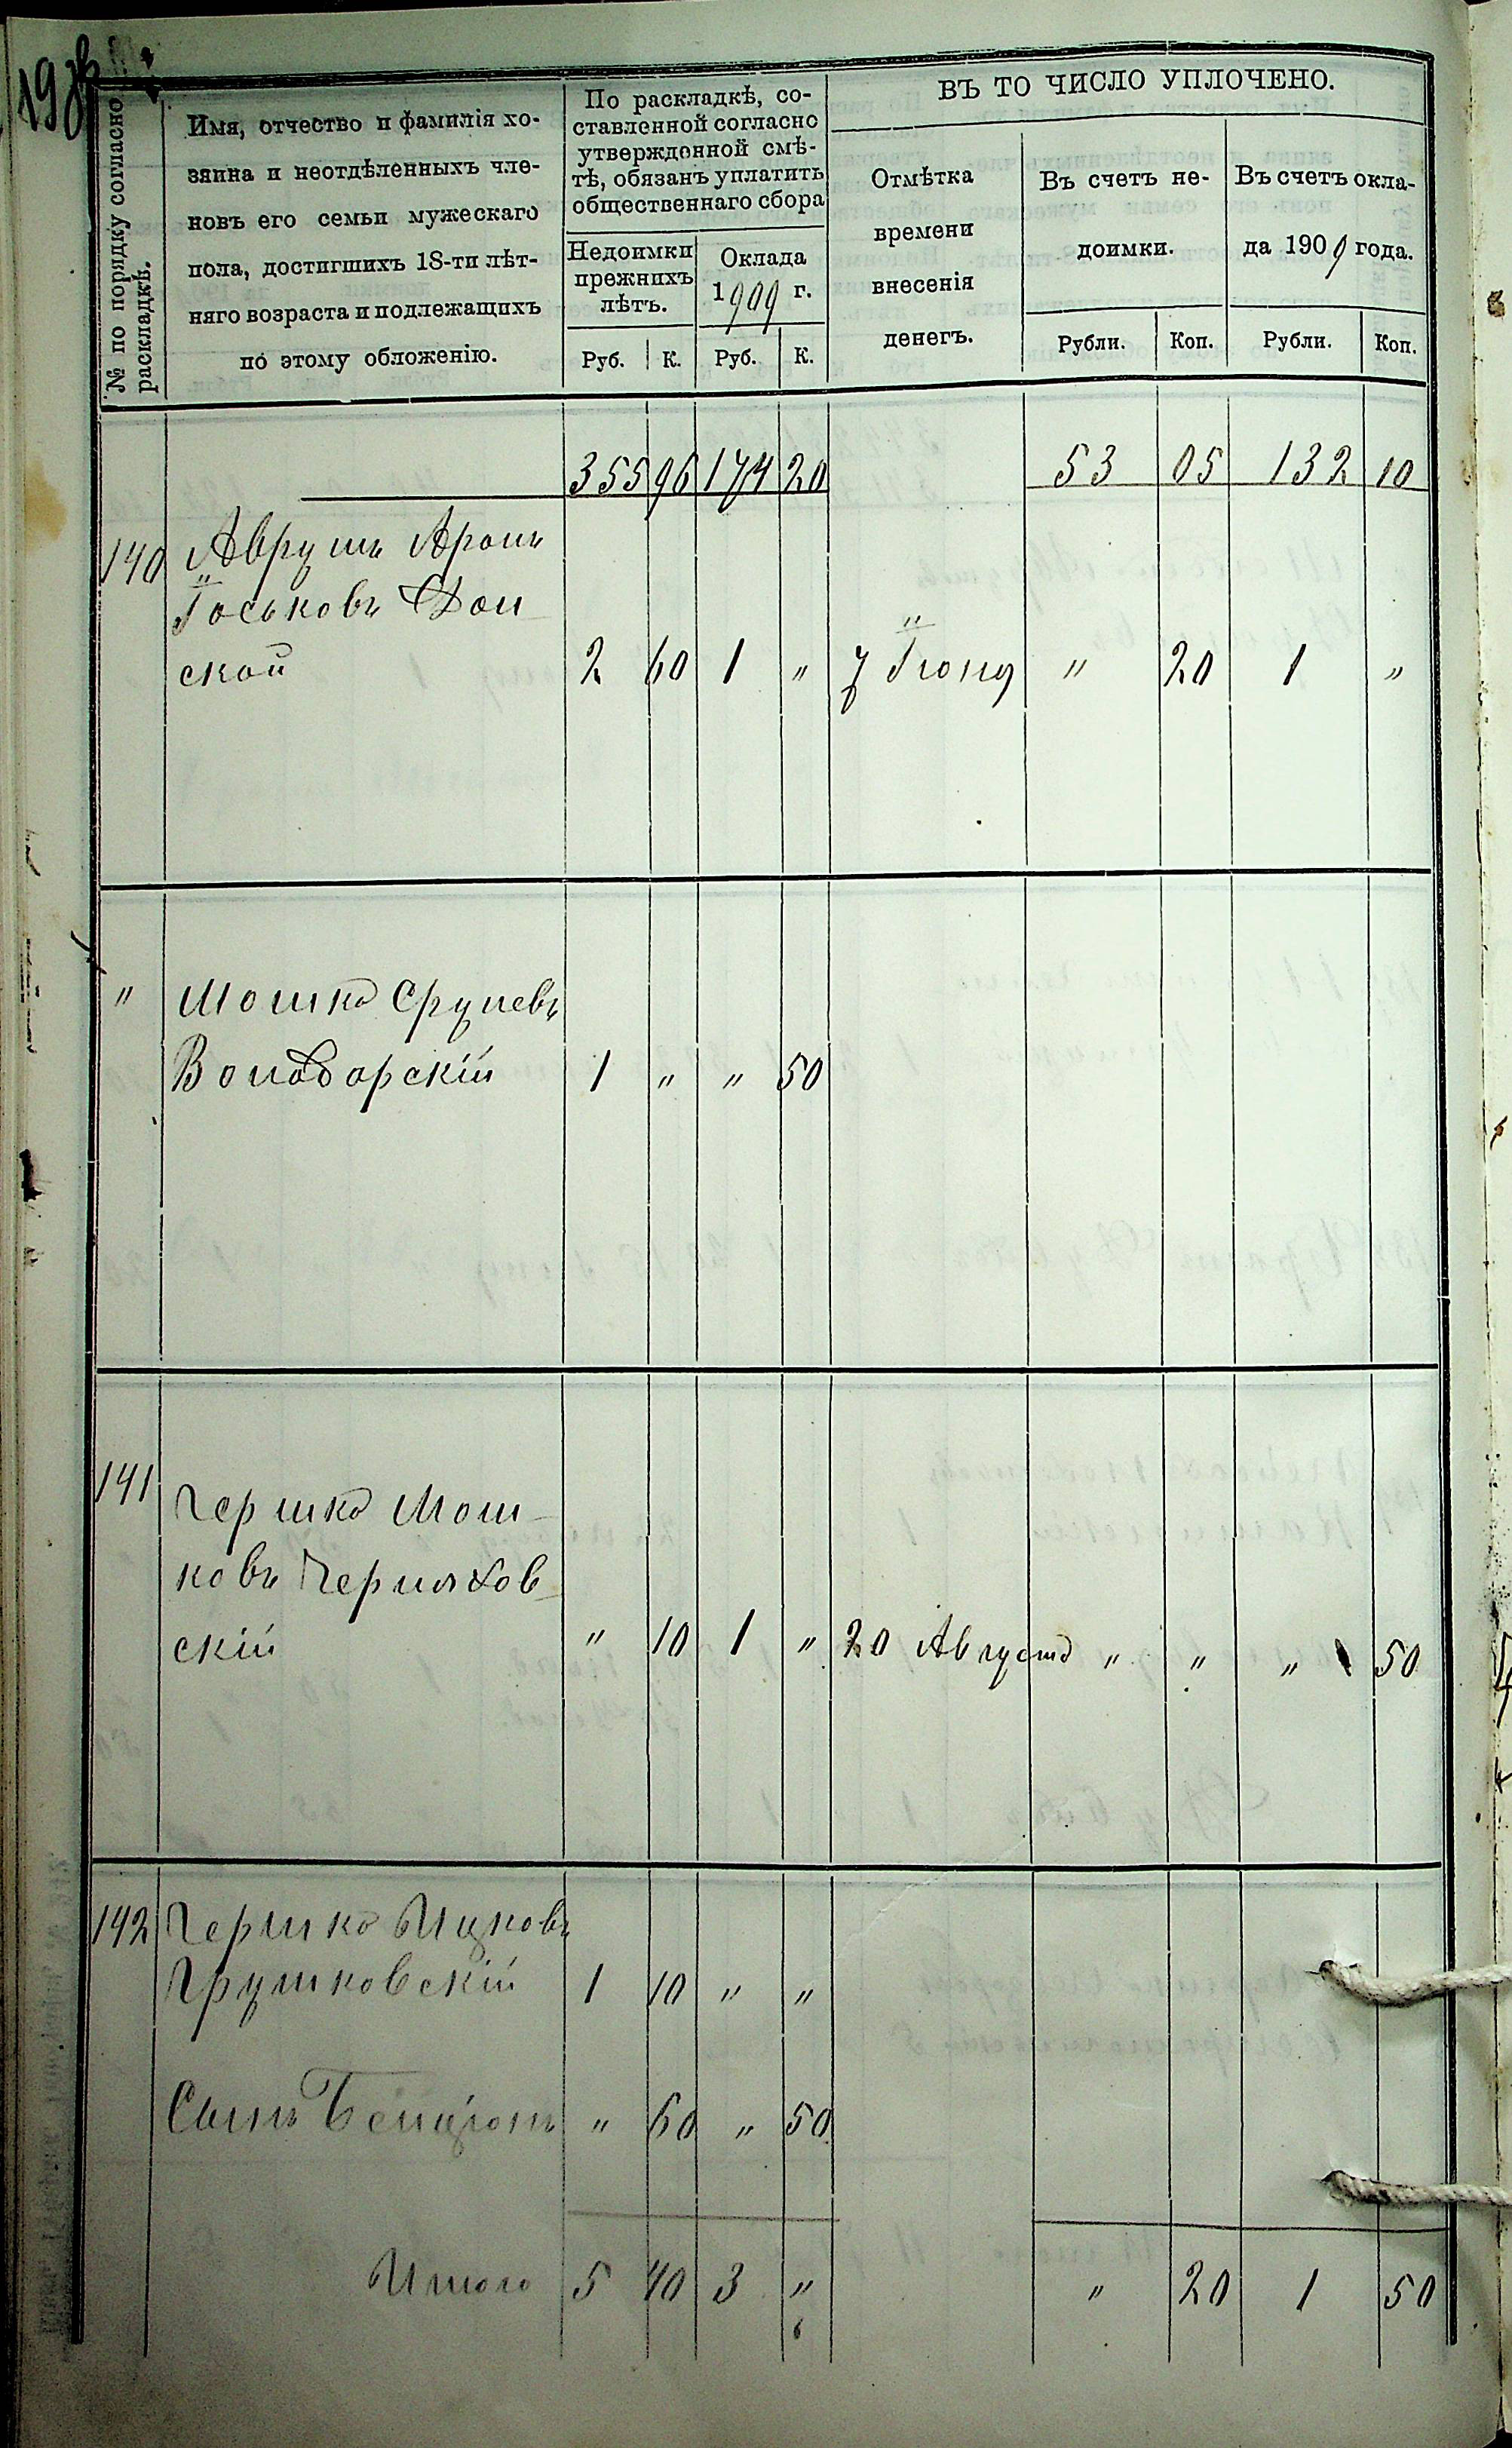 198
№ по порядку согласно
раскладкѣ.
Имя, отчество и фамилія хо-
зяина и неотдѣленныхъ чле-
новъ его семьи мужескаго
пола, достигшихъ 18-ти лѣт-
няго возраста и подлежащихъ
по этому обложенію.
По раскладкѣ, со-
ставленной согласно
утвержденной смѣ-
тѣ, обязанъ уплатить
общественнаго сбора
Недоимки
прежнихъ
лѣтъ.
Оклада
1909 г.
Руб. К. Руб. К.
ВЪ ТО ЧИСЛО УПЛОЧЕНО.
Отмѣтка
времени
внесенія
денегъ.
Въ счетъ не-
доимки.
Въ счетъ окла-
да 1909 года.
Рубли. Коп. Рубли. Коп.
355 96 174 20 53 05 132 10
140 Аврумъ Аронъ
Іоськовъ Дон-
ской 2 60 1 " 7 Іюня " 20 1 "
" Мошко Срулевъ
Володарскій 1 " " 50
141 Гершко Мош-
ковъ Черняхов-
скій " 10 1 " 20 Августа " " " 50
142 Гершко Ицковъ
Грушковскій 1 10 " "
Сынъ Бенціонъ " 60 " 50
Итого 5 40 3 " " 20 1 50